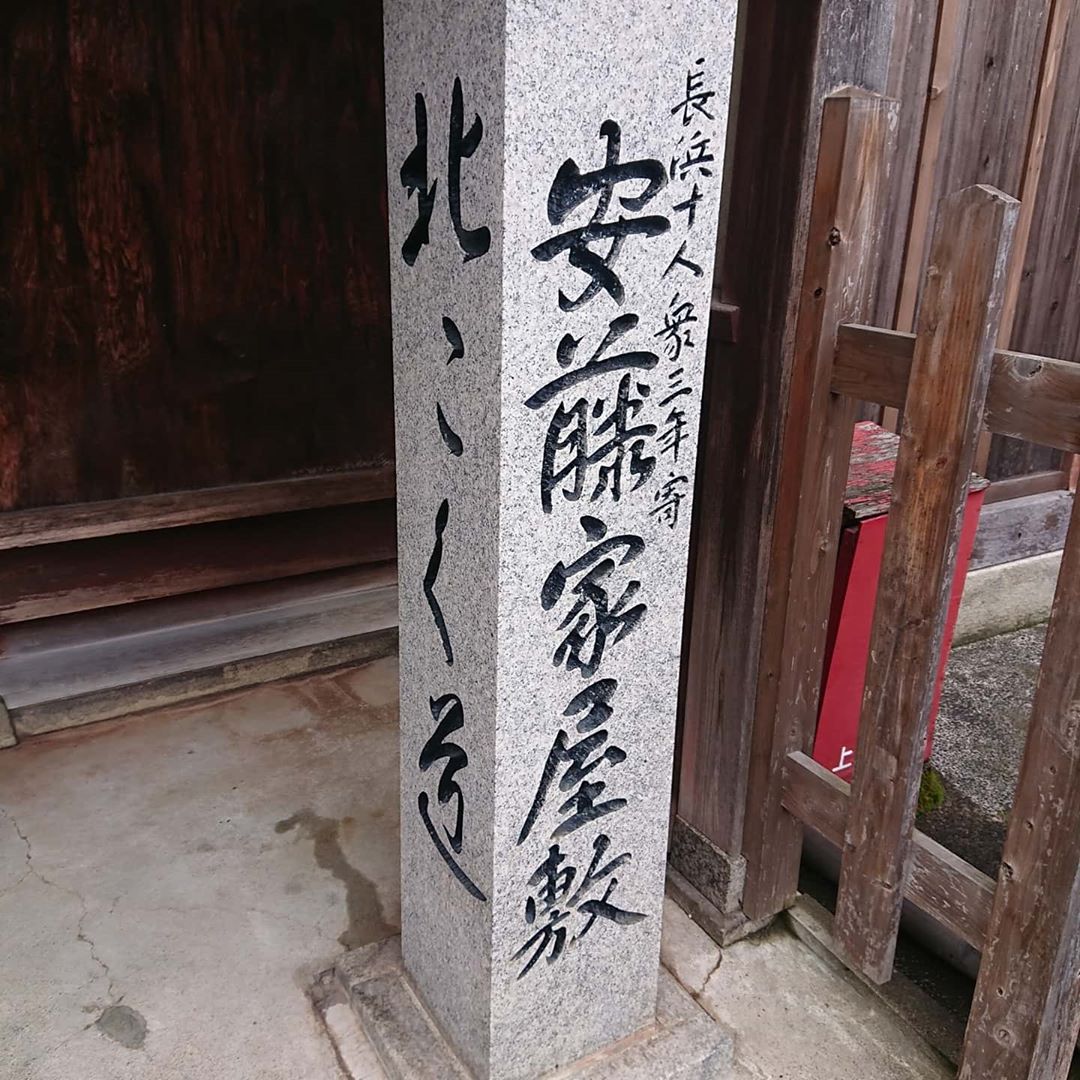 長浜十人衆三年寄
安藤家屋敷
北こく道
上